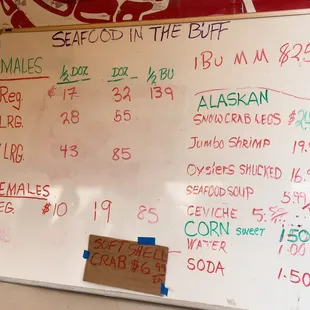 SEAFOOD IN THE BUFF
MALES ½ DOZ DOZ ½ BU
Reg $17 32 139
LRG. 28 55
LRG. 43 85
FEMALES
EG. $10 19 85
SOFT SHELL
CRAB $6.99
EA
1 BU M M $25
ALASKAN
SNOW CRAB LEGS
Jumbo Shrimp 19.
Oysters SHUCKED 16.
SEAFOOD SOUP 5.99
CEVICHE 5.
CORN SWEET 1.50
WATER 1.00
SODA 1.50